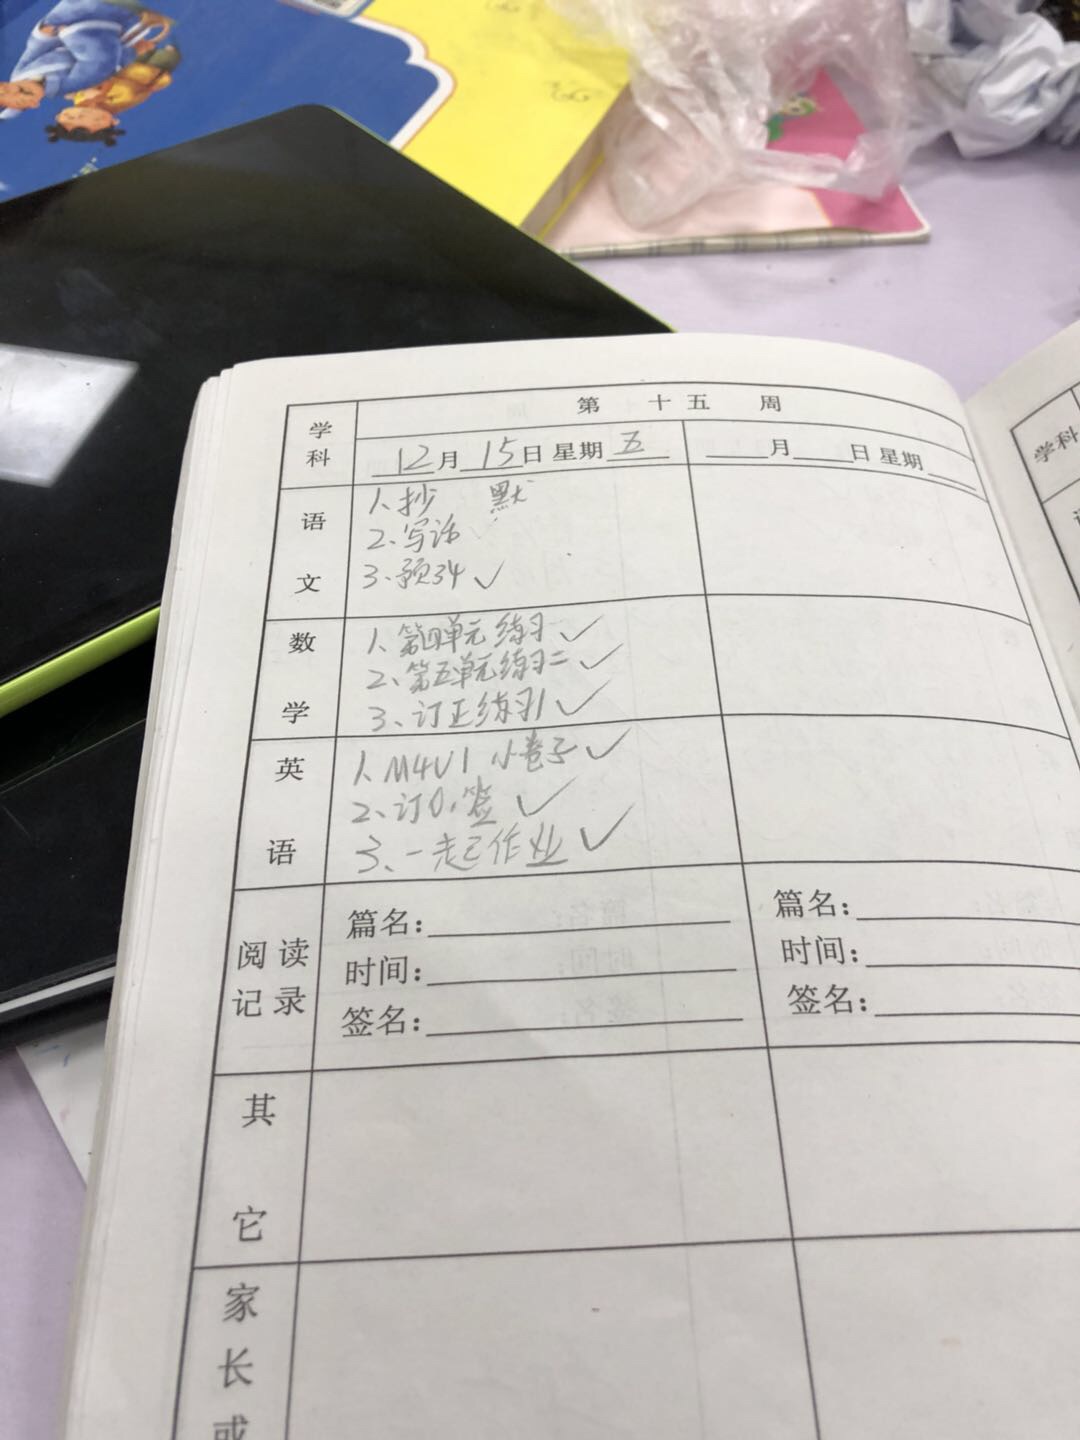 学科
第 十五 周
12月15日 星期五
月 日 星期
学科
语文
1、抄 默
2、写话
3、预34 ✓
数学
1、第四单元练习一 ✓
2、第五单元练习二 ✓
3、订正练习1 ✓
英语
1、M4U1 小卷子 ✓
2、订0、签 ✓
3、一起作业 ✓
阅读记录
篇名：
时间：
签名：
篇名：
时间：
签名：
其它
家长或